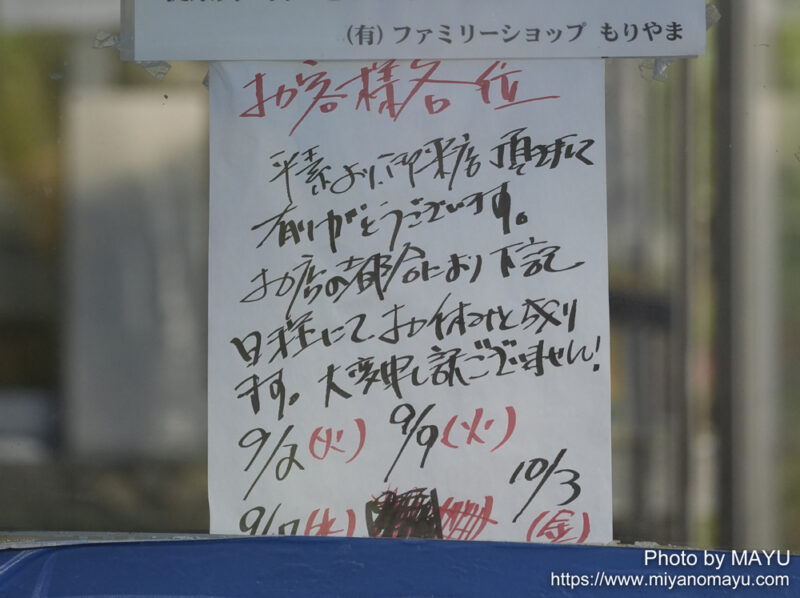 (有) ファミリーショップ もりやま
お客様各位
平素より御来店頂きまして
有りがとうございます。
お店の都合により下記
日程にて、お休みと成り
ます。大変申し訳ございません!
9/2(火) 9/9(火)
10/3
(金)
Photo by MAYU
https://www.miyanomayu.com